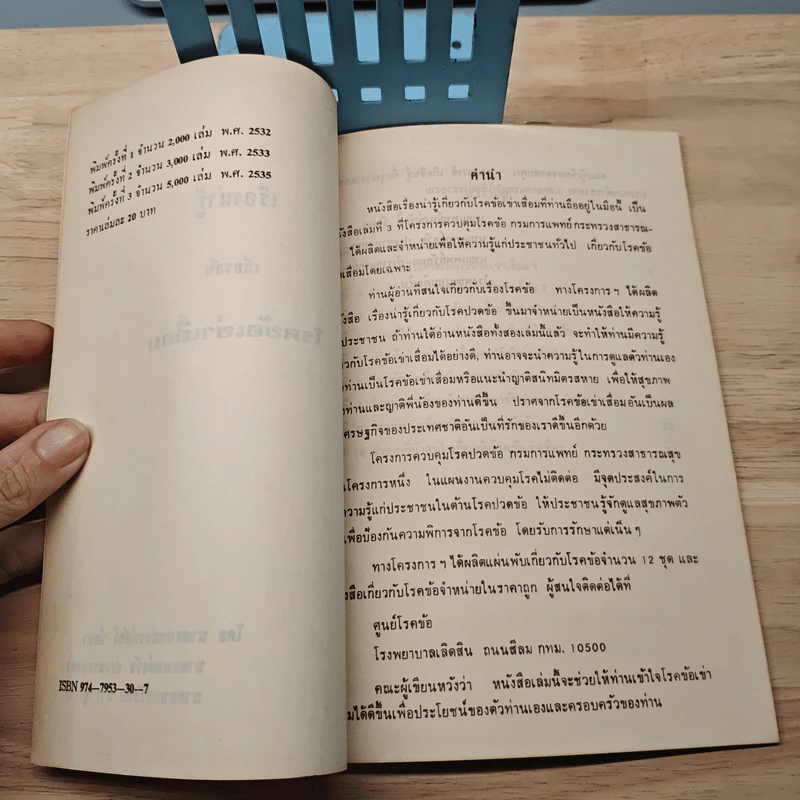 พิมพ์ครั้งที่ 1 จำนวน 2,000 เล่ม พ.ศ. 2532
พิมพ์ครั้งที่ 2 จำนวน 3,000 เล่ม พ.ศ. 2533
พิมพ์ครั้งที่ 3 จำนวน 5,000 เล่ม พ.ศ. 2535
ราคาเล่มละ 20 บาท
ISBN 974-7953-30-7
คำนำ
หนังสือเรื่องน่ารู้เกี่ยวกับโรคข้อเข่าเสื่อมที่ท่านถืออยู่ในมือนี้ เป็น
งสือเล่มที่ 3 ที่โครงการควบคุมโรคข้อ กรมการแพทย์ กระทรวงสาธารณ-
ได้ผลิตและจำหน่ายเพื่อให้ความรู้แก่ประชาชนทั่วไป เกี่ยวกับโรคข้อ
เสื่อมโดยเฉพาะ
ท่านผู้อ่านที่สนใจเกี่ยวกับเรื่องโรคข้อ ทางโครงการ ฯ ได้ผลิต
งสือ เรื่องน่ารู้เกี่ยวกับโรคปวดข้อ ขึ้นมาจำหน่ายเป็นหนังสือให้ความรู้
ประชาชน ถ้าท่านได้อ่านหนังสือทั้งสองเล่มนี้แล้ว จะทำให้ท่านมีความรู้
วกับโรคข้อเข่าเสื่อมได้อย่างดี, ท่านอาจจะนำความรู้ในการดูแลตัวท่านเอง
ท่านเป็นโรคข้อเข่าเสื่อมหรือแนะนำญาติสนิทมิตรสหาย เพื่อให้สุขภาพ
งท่านและญาติพี่น้องของท่านดีขึ้น ปราศจากโรคข้อเข่าเสื่อมอันเป็นผล
ศรษฐกิจของประเทศชาติอันเป็นที่รักของเราดีขึ้นอีกด้วย
โครงการควบคุมโรคปวดข้อ กรมการแพทย์ กระทรวงสาธารณสุข
นโครงการหนึ่ง ในแผนงานควบคุมโรคไม่ติดต่อ มีจุดประสงค์ในการ
ความรู้แก่ประชาชนในด้านโรคปวดข้อ ให้ประชาชนรู้จักดูแลสุขภาพตัว
เพื่อป้องกันความพิการจากโรคข้อ โดยรับการรักษาแต่เนิ่น ๆ
ทางโครงการ ฯ ได้ผลิตแผ่นพับเกี่ยวกับโรคข้อจำนวน 12 ชุด และ
งสือเกี่ยวกับโรคข้อจำหน่ายในราคาถูก ผู้สนใจติดต่อได้ที่
ศูนย์โรคข้อ
โรงพยาบาลเลิดสิน ถนนสีลม กทม. 10500
คณะผู้เขียนหวังว่า หนังสือเล่มนี้จะช่วยให้ท่านเข้าใจโรคข้อเข่า
มได้ดีขึ้นเพื่อประโยชน์ของตัวท่านเองและครอบครัวของท่าน